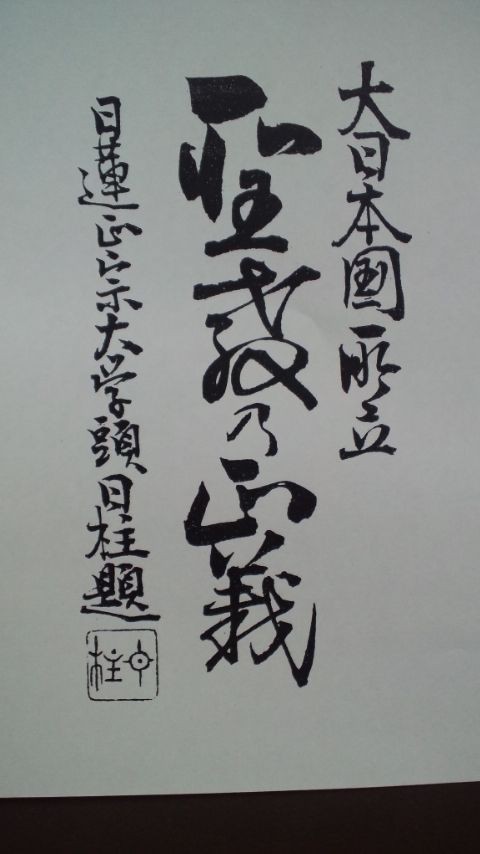 大日本国所立
聖教乃正義
日蓮正宗大学頭日柱題
日柱